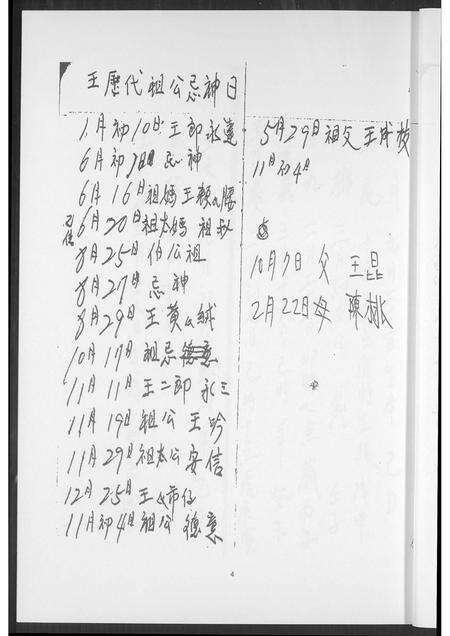 王歷代祖公忌神日
1月初10日王郎永
6月初7日忌神
6月16日祖媽王顏氏腰
6月20日祖太媽 祖叔
8月25日伯公祖
8月27日忌神
8月29日王黃么絨
10月17日祖忌德意
11月11日王二郎永三
11月19日祖公王吟
11月29日祖太公安信
12月25日王
11月初4日祖公德意
5月29日祖父王成枝
11月初4日
10月7日父 王昆
2月22日母 陳桃
4